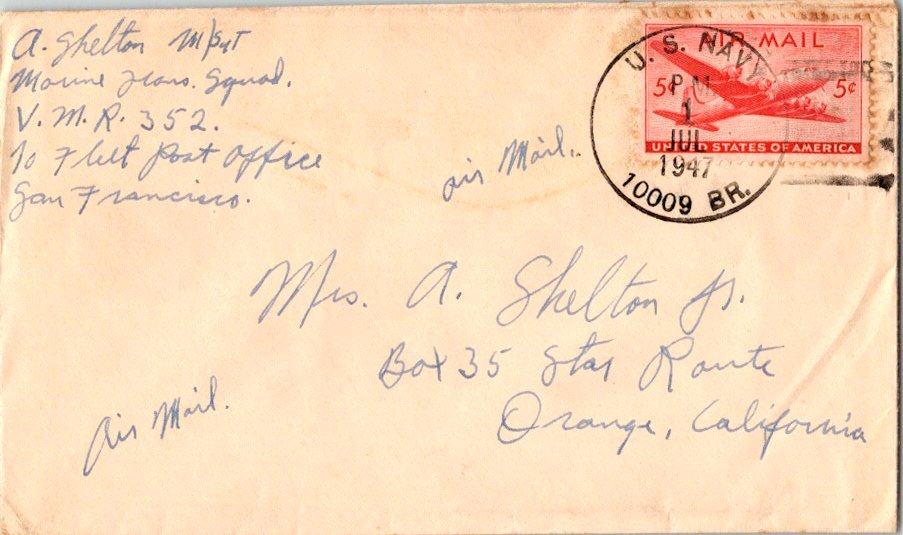 A. Shelton M/Sgt
Marine Trans. Squad.
V. M. R. 352.
℅ Fleet Post Office
San Francisco.
Air Mail.
AIR MAIL
5¢ 5¢
UNITED STATES OF AMERICA
U. S. NAVY
P M
1
JUL
1947
10009 BR.
Mrs. A. Shelton Jr.
Box 35 Star Route
Orange, California
Air Mail.